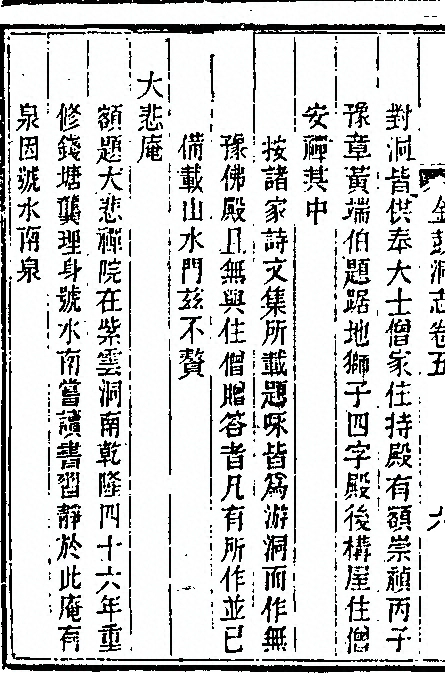 金鼓洞志卷五 六
對洞皆供奉大士僧家住持殿有額崇禎丙子
豫章黃端伯題踞地獅子四字殿後構屋住僧
安禪其中
按諸家詩文集所載題咏皆爲游洞而作無
豫佛殿且無與住僧贈答者凡有所作並已
備載山水門茲不贅
大悲庵
額題大悲禪院在紫雲洞南乾隆四十六年重
修錢塘龔理身號水南嘗讀書習靜於此庵有
泉因號水南泉